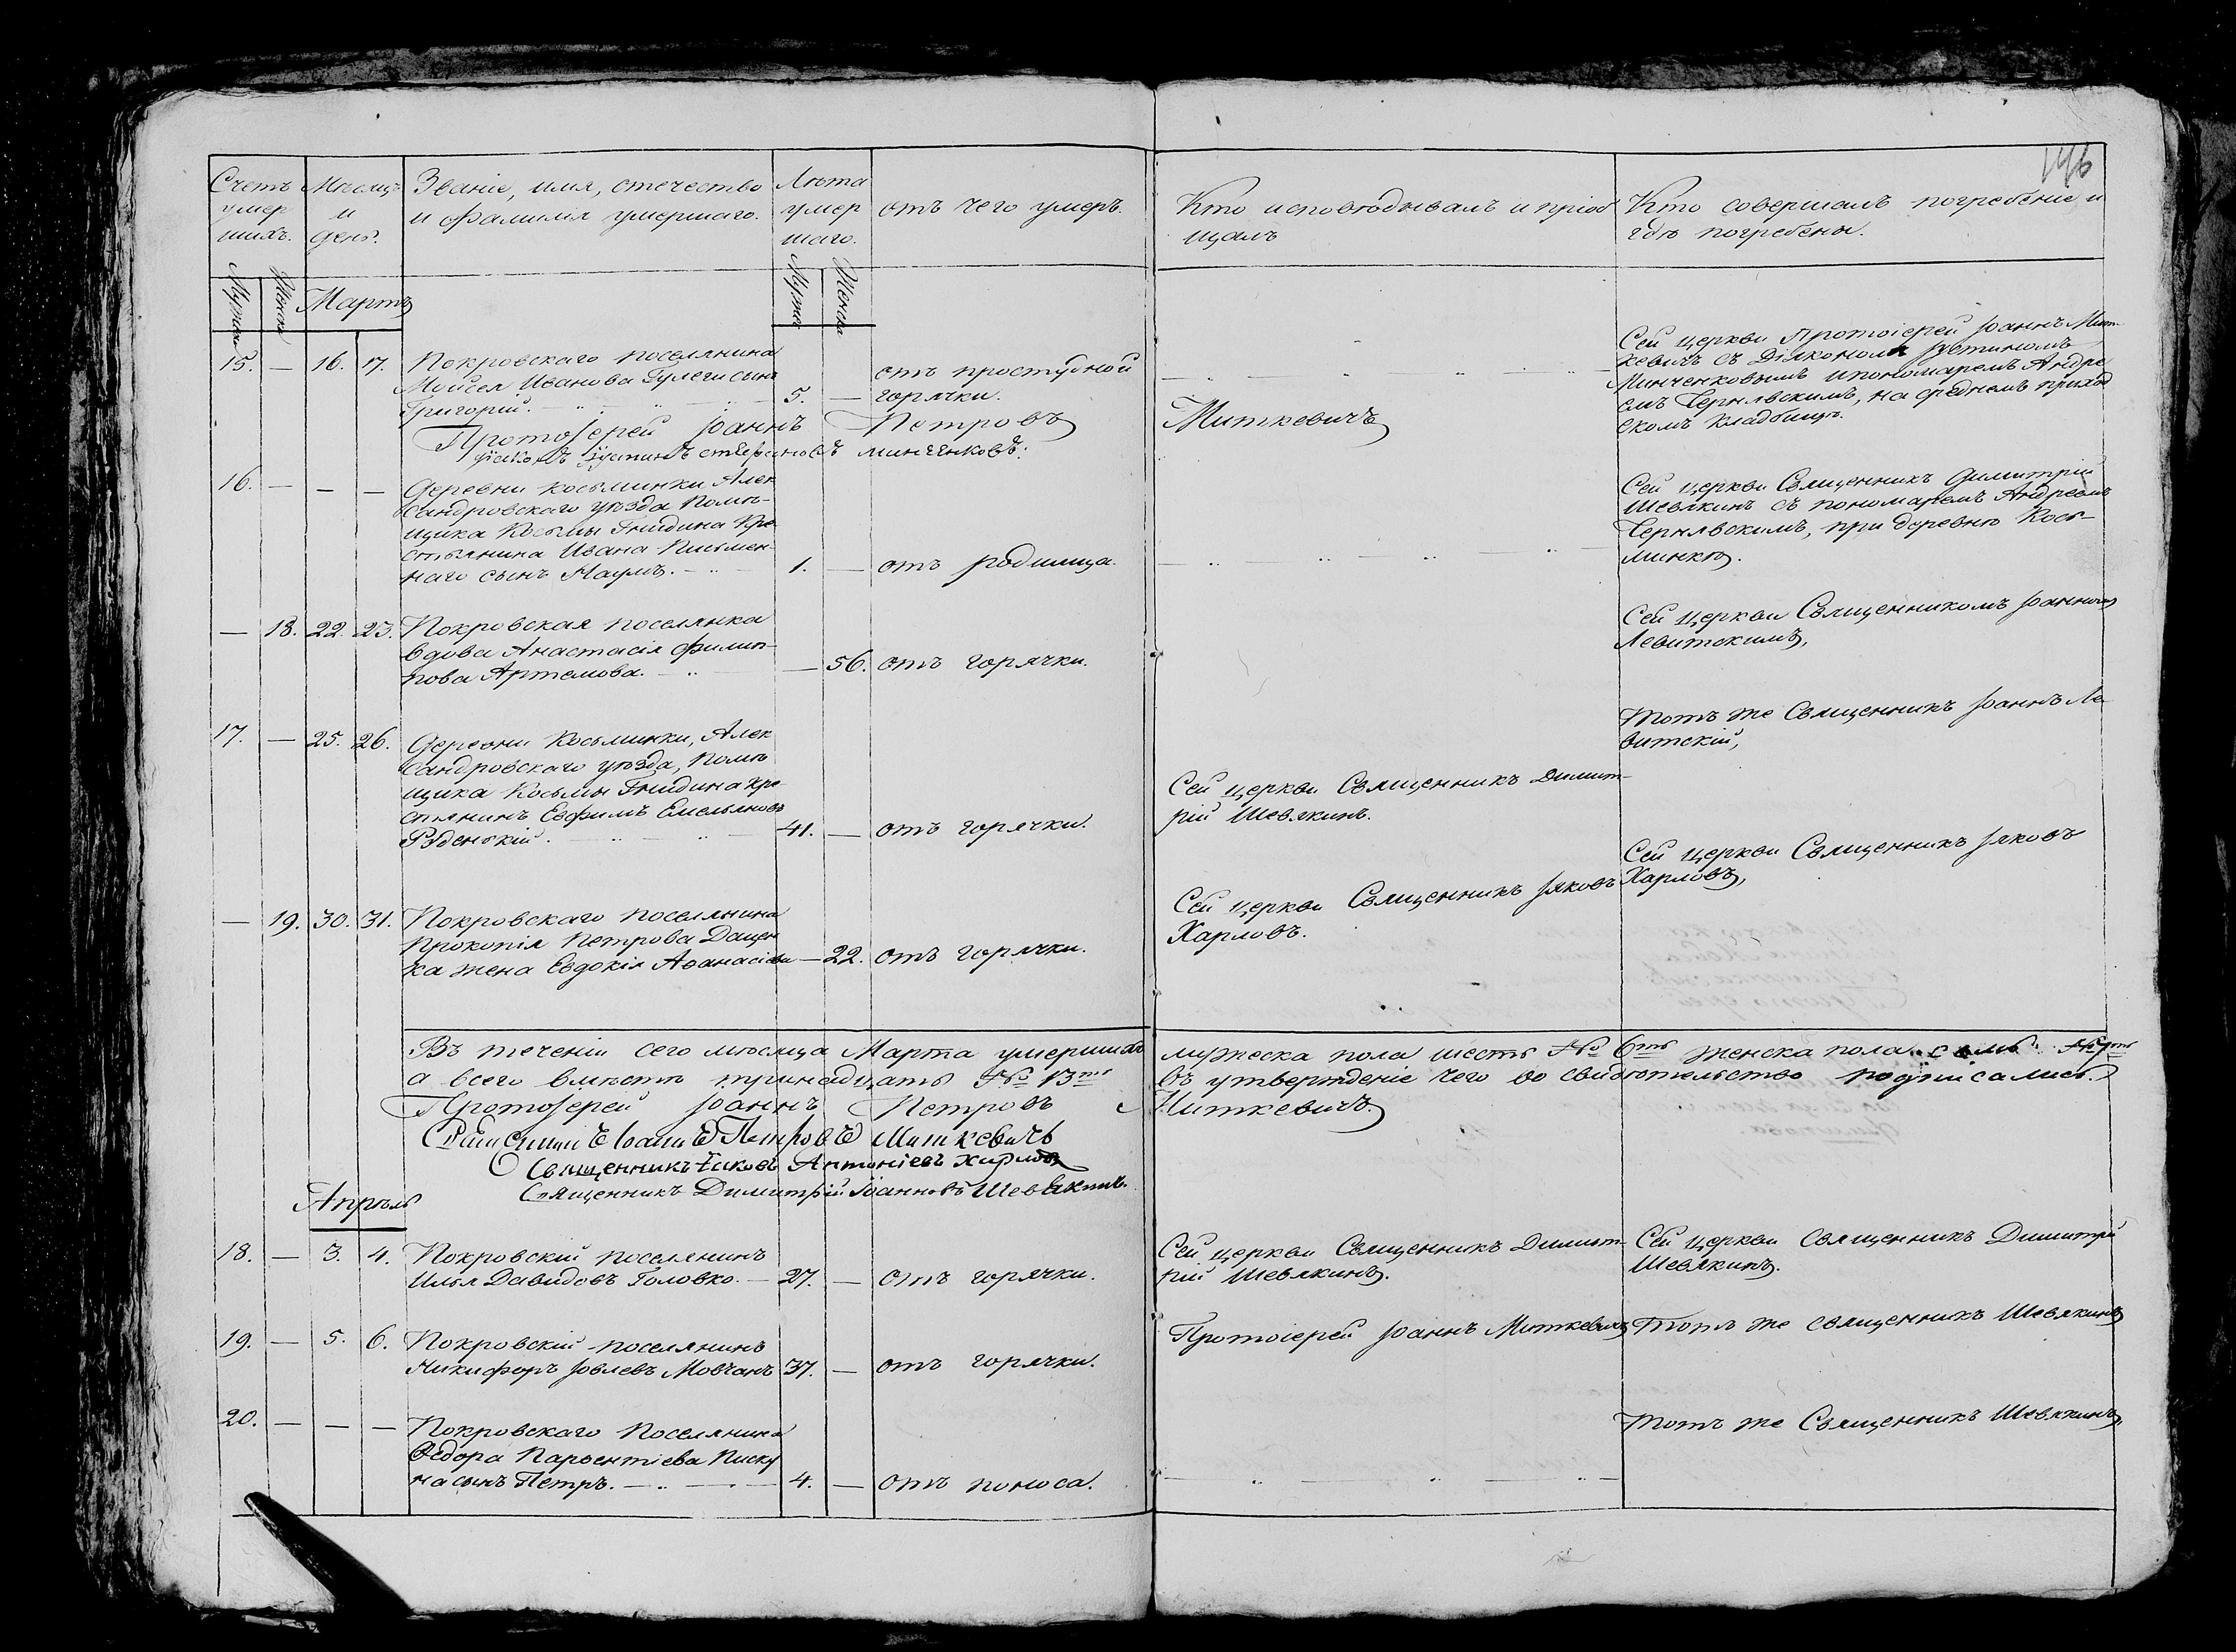 146
Счетъ умер шихъ.
Мѣсяцъ и день.
Званіе, имя, отечество и фамилія умершаго.
Лѣта умер шаго.
отъ чего умеръ.
Кто исповѣдывалъ и пріоб щалъ
Кто совершалъ погребеніе и гдѣ погребены.
Мужеска Женска
Мартъ
Мужеска Женска
15. — 16. 17. Покровскаго поселянина
Мойсея Иванова сынъ
Григорій. 5. —
отъ простудной
горячки.
Сей церкви Протоіерей Іоаннъ Мит-
кевичъ съ Діякономъ Іустиномъ
Минченковымъ и пономаремъ Андре
емъ Чернявскимъ, на среднемъ приход
скомъ кладбищѣ.
Протоіерей Іоаннъ Петровъ Миткевичъ
діаконъ Іустинъ Стефановъ Минченковъ.
16. — — — Деревни Косьминки Алек
сандровскаго уѣзда Помѣ-
щика Косьмы Гнидина Кре
стьянина Ивана Письмен-
наго сынъ Наумъ. 1. — отъ родимца.
Сей церкви Священникъ Димитрій
Шевякинъ съ пономаремъ Андреемъ
Чернявскимъ, при деревнѣ Кось-
минкѣ.
— 18. 22. 23. Покровская поселянка
вдова Анастасія Филип-
пова Артемова. — 56. отъ горячки.
Сей церкви Священникомъ Іоанномъ
Левитскимъ,
17. — 25. 26. Деревни Косьминки, Алек
сандровскаго уѣзда, Помѣ
щика Косьмы Гнидина кре
стянинъ Евфимъ Емельяновъ
Руденскій. 41. — отъ горячки.
Сей церкви Священникъ Димит-
рій Шевякинъ.
Тотъ же Священникъ Іоаннъ Ле
витскій,
— 19. 30. 31. Покровскаго поселянина
Прокопія Петрова Дащен
ка жена Евдокія Аѳанасіева — 22. отъ горячки.
Сей церкви Священникъ Іяковъ
Харловъ.
Сей церкви Священникъ Іяковъ
Харловъ,
Въ теченіи сего мѣсяца Марта умершихъ мужеска пола шесть № 6ть женска пола семь № 7мь
а всего вмѣстѣ тринадцать № 13ть въ утвержденіе чего во свидѣтельство подписались.
Протоіерей Іоаннъ Петровъ Миткевичъ.
Іоаннъ Петровъ Миткевичъ
Священникъ Іаковъ Антоніевъ Харловъ
Священникъ Димитрій Іоанновъ Шевякинъ.
Апрѣль
18. — 3. 4. Покровскій поселянинъ
Илья Давидовъ Головко. — 27. — отъ горячки.
Сей церкви Священникъ Димит-
рій Шевякинъ.
Сей церкви Священникъ Димитрій
Шевякинъ.
19. — 5. 6. Покровскій поселянинъ
Никифоръ Іовлевъ Мовчанъ 37. — отъ горячки.
Протоіерей Іоаннъ Миткевичъ
Тотъ же священникъ Шевякинъ
20. — — — Покровскаго Поселянина
Ѳедора Парѳентіева Писку
на сынъ Петръ. 4. — отъ поноса.
Тотъ же Священникъ Шевякинъ,